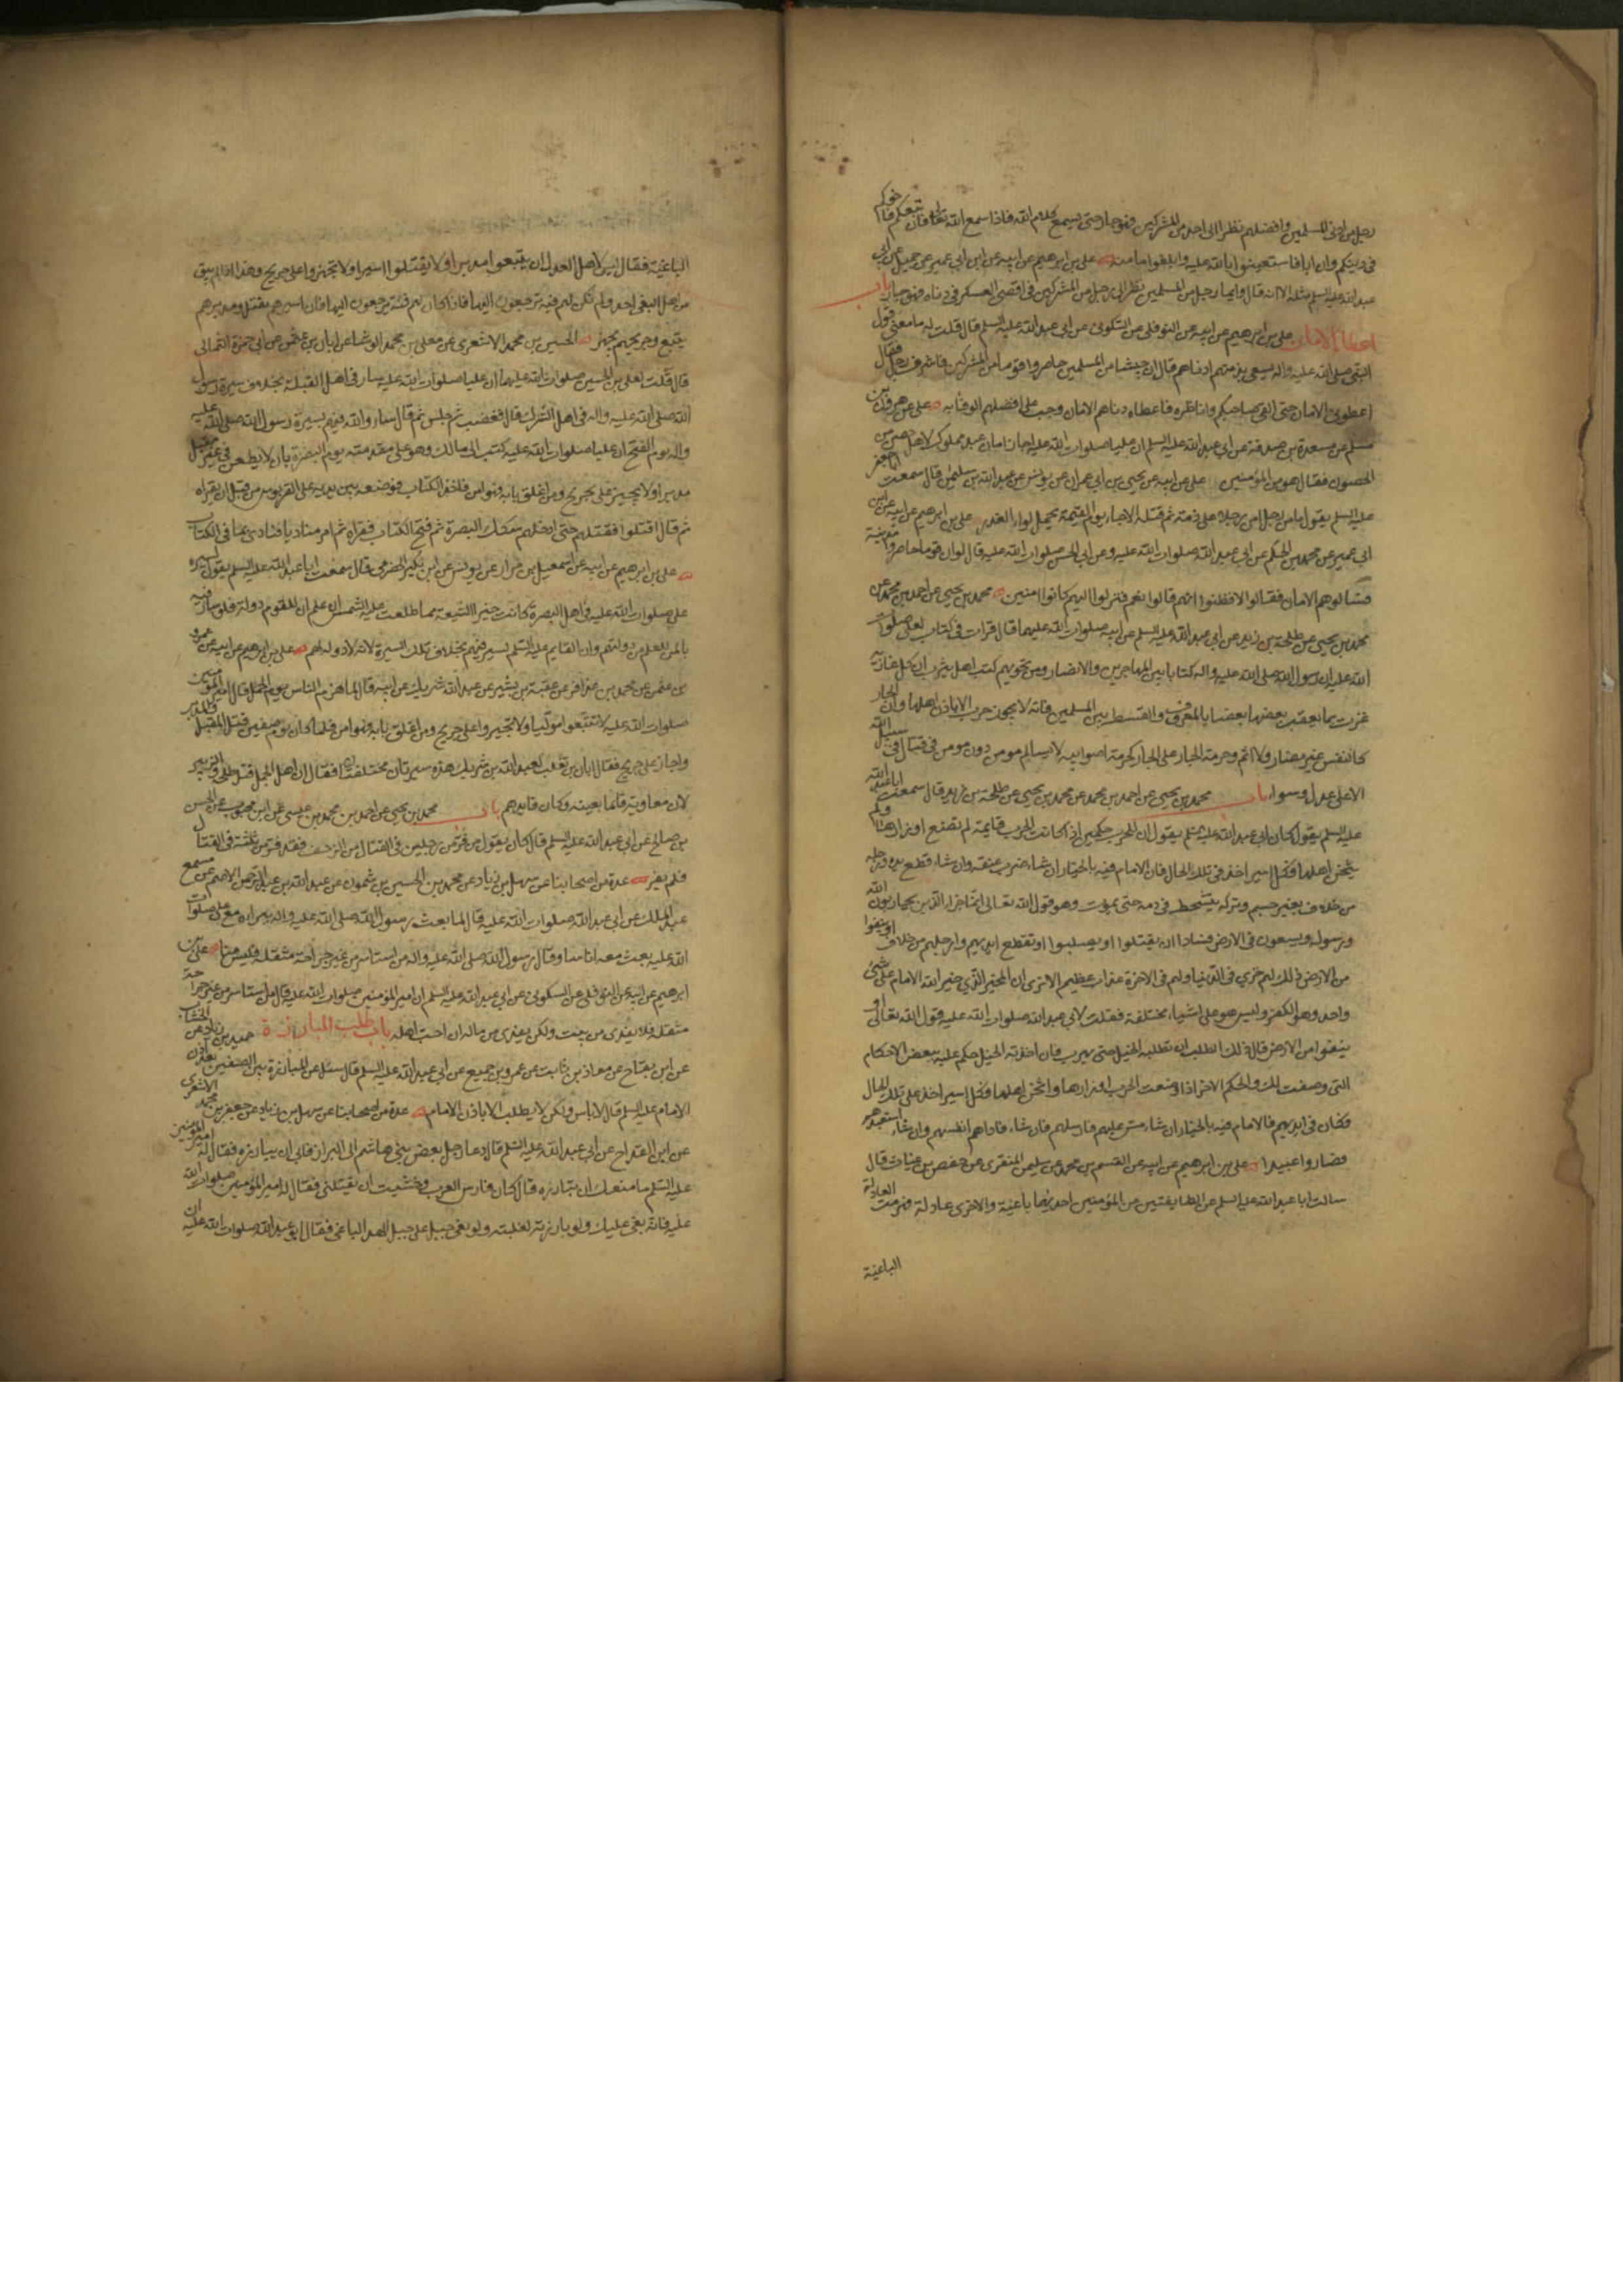 رجل من ادنى المسلمين وافضلهم نظر الى احد من المشركين فهو جار حتى يسمع كلام الله فاذا سمع كلام الله تعالى فان تبعكم فاخوكم
في دينكم وان ابا فاستعينوا بالله عليه وابلغوا مامنه علي بن ابرهيم عن ابيه عن ابن ابي عمير عن جميل عن ابي
عبد الله عليه السلم مثله الا انه قال وايما رجل من المسلمين نظر الى رجل من المشركين في اقصى العسكر وادناه فهو جار باب
اعطاء الامان علي بن ابرهيم عن ابيه عن النوفلي عن السكوني عن ابي عبد الله عليه السلم قال قلت له ما معنى قول
النبي صلى الله عليه واله يسعى بذمتهم ادناهم قال ان جيشا من المسلمين حاصروا قوما من المشركين فاشرف رجل فقال
اعطوني الامان حتى القى صاحبكم واناظره فاعطاه ادناهم الامان وجب على افضلهم الوفا به علي عن هرون بن
مسلم عن مسعدة بن صدقة عن ابي عبد الله عليه السلم ان عليا صلوات الله عليه اجاز امان عبد مملوك لاهل حصن من
الحصون فقال هو من المؤمنين علي عن ابيه عن يحيى بن ابي عمران عن يونس عن عبد الله بن سليمن قال سمعت ابا جعفر
عليه السلم يقول ما من رجل امن رجلا على ذمته ثم قتله الا جاء يوم القيمة يحمل لواء الغدر علي بن ابرهيم عن ابيه عن ابن
ابي عمير عن محمد بن الحكم عن ابي عبد الله صلوات الله عليه وعن ابي الحسن صلوات الله عليه قال لو ان قوما حاصروا مدينة
فسالوهم الامان فقالوا لا فظنوا انهم قالوا نعم فنزلوا اليهم كانوا امنين محمد بن يحيى عن احمد بن محمد عن
محمد بن يحيى عن طلحة بن زيد عن ابي عبد الله عليه السلم عن ابيه صلوات الله عليهما قال قرات في كتاب لعلي صلوات
الله عليه ان رسول الله صلى الله عليه واله كتب كتابا بين المهاجرين والانصار ومن لحق بهم كتب اهل يثرب ان كل غازية
غزت بما يعقب بعضها بعضا بالمعروف والقسط بين المسلمين فانه لا يجوز حرب الا باذن اهلها وان الجار
كالنفس غير مضار ولا اثم وحرمة الجار على الجار كحرمة امه وابيه لا يسالم مومن دون مومن في قتال في سبيل الله
الا على عدل وسواء باب محمد بن يحيى عن احمد بن محمد عن محمد بن يحيى عن طلحة بن زيد قال سمعت ابا عبد الله
عليه السلم يقول كان ابي عبد الله عليه السلم يقول ان للحرب حكمين اذا كانت الحرب قايمة لم تضع اوزارها ولم
يثخن اهلها فكل اسير اخذ في تلك الحال فان الامام فيه بالخيار ان شاء ضرب عنقه وان شاء قطع يده ورجله
من خلاف بغير حسم وتركه يتشحط في دمه حتى يموت وهو قول الله تعالى انما جزاء الذين يحاربون الله
ورسوله ويسعون في الارض فسادا ان يقتلوا او يصلبوا او تقطع ايديهم وارجلهم من خلاف او ينفوا
من الارض ذلك لهم خزي في الدنيا ولهم في الاخرة عذاب عظيم الا ترى ان المخير الذي خير الله الامام على شئ
واحد وهو الكفر وليس هو على اشياء مختلفة فقلت لابي عبد الله صلوات الله عليه قول الله تعالى او
ينفوا من الارض قال ذلك الطلب ان تطلبه الخيل حتى يهرب فان اخذته الخيل حكم عليه ببعض الاحكام
التي وصفت لك والحكم الاخر اذا وضعت الحرب اوزارها واثخن اهلها فكل اسير اخذ على تلك الحال
فكان في ايديهم فالامام فيه بالخيار ان شاء من عليهم فارسلهم وان شاء فاداهم انفسهم وان شاء استعبدهم
فصاروا عبيدا علي بن ابرهيم عن ابيه عن القسم بن محمد عن سليمن المنقري عن حفص بن غياث قال
سالت ابا عبد الله عليه السلم عن الطايفتين من المؤمنين احديهما باغية والاخرى عادلة فهزمت العادلة
الباغية
الباغية فقال ليس لاهل العدل ان يتبعوا مدبرا ولا يقتلوا اسيرا ولا يجهزوا على جريح وهذا اذا لم يبق
من اهل البغي احد ولم تكن لهم فئة يرجعون اليها فاذا كان لهم فئة يرجعون اليها فان اسيرهم يقتل ومدبرهم
يتبع وجريحهم يجهز الحسين بن محمد الاشعري عن معلى بن محمد عن الوشا عن ابان بن عثمن عن ابي حمزة الثمالي
قال قلت لعلي بن الحسين صلوات الله عليهما ان عليا صلوات الله عليه سار في اهل القبلة بخلاف سيرة رسول
الله صلى الله عليه واله في اهل الشرك قال فغضب ثم جلس ثم قال سار والله فيهم بسيرة رسول الله صلى الله عليه
واله يوم الفتح ان عليا صلوات الله عليه كتب الى مالك وهو على مقدمته يوم البصرة بان لا يطعن في غير مقبل
ولا يقتل مدبرا ولا يجهز على جريح ومن اغلق بابه فهو امن فاخذ الكتاب فوضعه بين يديه على القربوس من قبل ان يقراه
ثم قال اقتلوا فقتلهم حتى ادخلهم سكك البصرة ثم فتح الكتاب فقراه ثم امر مناديا فنادى بما في الكتاب
علي بن ابرهيم عن ابيه عن اسمعيل بن مرار عن يونس عن ابي بكر الحضرمي قال سمعت ابا عبد الله عليه السلم يقول لسيرة
علي صلوات الله عليه في اهل البصرة كانت خيرا لشيعته مما طلعت عليه الشمس ان علم ان للقوم دولة فلو سار فيهم
بالمن للعلم من دولتهم وان القايم عليه السلم يسير فيهم بخلاف تلك السيرة لانه لا دولة لهم علي بن ابرهيم عن ابيه عن عمرو
بن عثمن عن محمد بن عذافر عن عقبة بن بشير عن عبد الله شريك عن ابيه قال لما هزم الناس يوم الجمل قال امير المؤمنين
صلوات الله عليه لا تتبعوا موليا ولا تجهزوا على جريح ومن اغلق بابه فهو امن فلما كان يوم صفين قتل المقبل والمدبر
واجاز على جريح فقال ابان بن تغلب لعبد الله بن شريك هذه سيرتان مختلفتان فقال ان اهل الجمل قتل طلحة والزبير
لان معاوية قائما بعينه وكان قايدهم باب محمد بن يحيى عن احمد بن محمد بن عيسى عن ابن محبوب عن الحسن
بن صالح عن ابي عبد الله عليه السلم قال كان يقول من فر من رجلين في القتال من الزحف فقد فر ومن فر من ثلثة في القتال
فلم يفر عدة من اصحابنا عن سهل بن زياد عن محمد بن الحسين بن شمون عن عبد الله بن عبد الرحمن الاصم عن مسمع
عبد الملك عن ابي عبد الله صلوات الله عليه قال لما بعث رسول الله صلى الله عليه واله ببراءة مع علي صلوات
الله عليه بعث معه اناسا وقال رسول الله صلى الله عليه واله من استاسر من غير جراحة مثقلة فليس منا علي بن
ابرهيم عن ابيه عن النوفلي عن السكوني عن ابي عبد الله عليه السلم ان امير المؤمنين صلوات الله عليه قال من استاسر من غير جراحة
مثقلة فلا يفدى من بيت ولكن يفدى من ماله ان احب اهله باب طلب المبارزة حميد بن زياد عن الخشاب
عن ابن بقاح عن معاذ بن ثابت عن عمرو بن جميع عن ابي عبد الله عليه السلم قال سئل عن المبارزة بين الصفين بغير اذن
الامام عليه السلم قال لا باس ولكن لا يطلب الا باذن الامام عدة من اصحابنا عن سهل بن زياد عن جعفر بن محمد الاشعري
عن ابن القداح عن ابي عبد الله عليه السلم قال دعا رجل بعض بني هاشم الى البراز فابى ان يبارزه فقال له امير المؤمنين
عليه السلم ما منعك ان تبارزه قال كان فارس العرب وخشيت ان يقتلني فقال له امير المؤمنين صلوات الله
عليه فانه بغى عليك ولو بارزته لغلبته ولو بغى جبل على جبل لهد الباغي فقال ابو عبد الله صلوات الله عليه ان